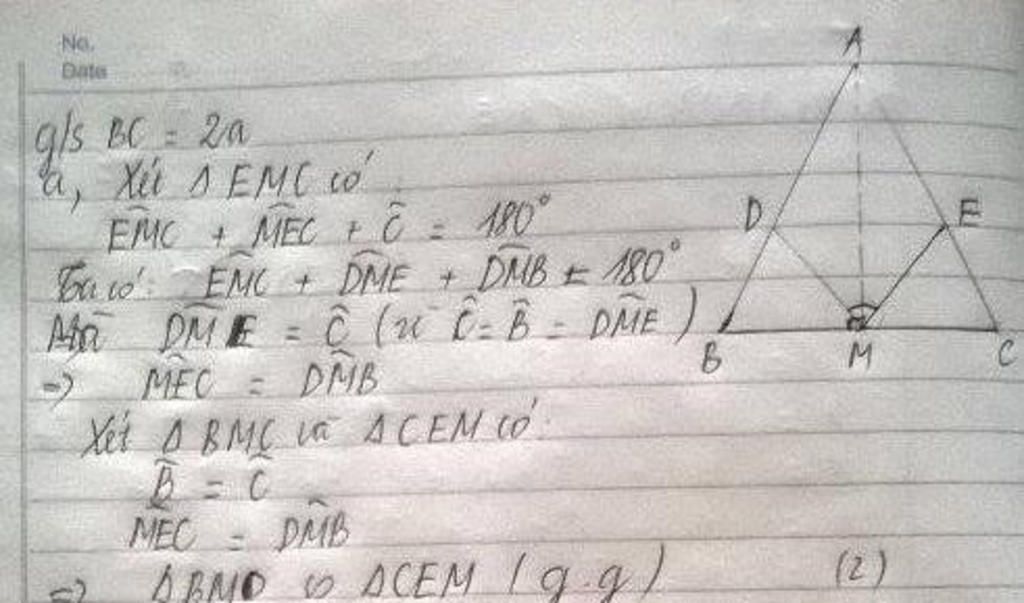 No.
Date
g/s BC = 2a
a, Xét Δ EMC có
A
ÊMC + M̂EC + Ĉ = 180°
Ta có: ÊMC + D̂ME + D̂MB = 180°
D
E
Mà D̂ME = Ĉ (vì Ĉ = B̂ = D̂ME)
B
M
C
=> M̂EC = D̂MB
Xét Δ BMC và Δ CEM có:
B̂ = Ĉ
M̂EC = D̂MB
=> Δ BMD ∽ Δ CEM (g.g) (2)